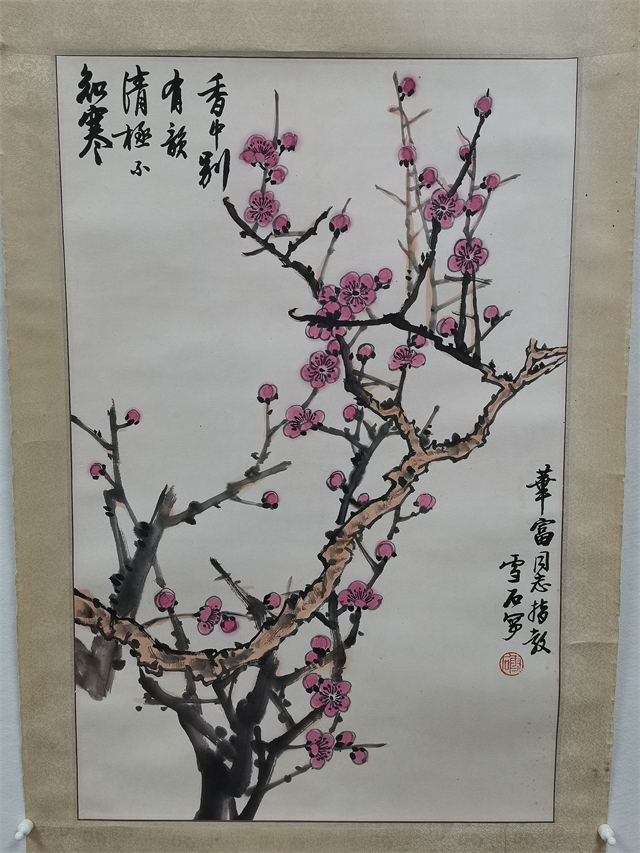 香中别
有韻
清極不
知寒
華富同志指教
雪石写